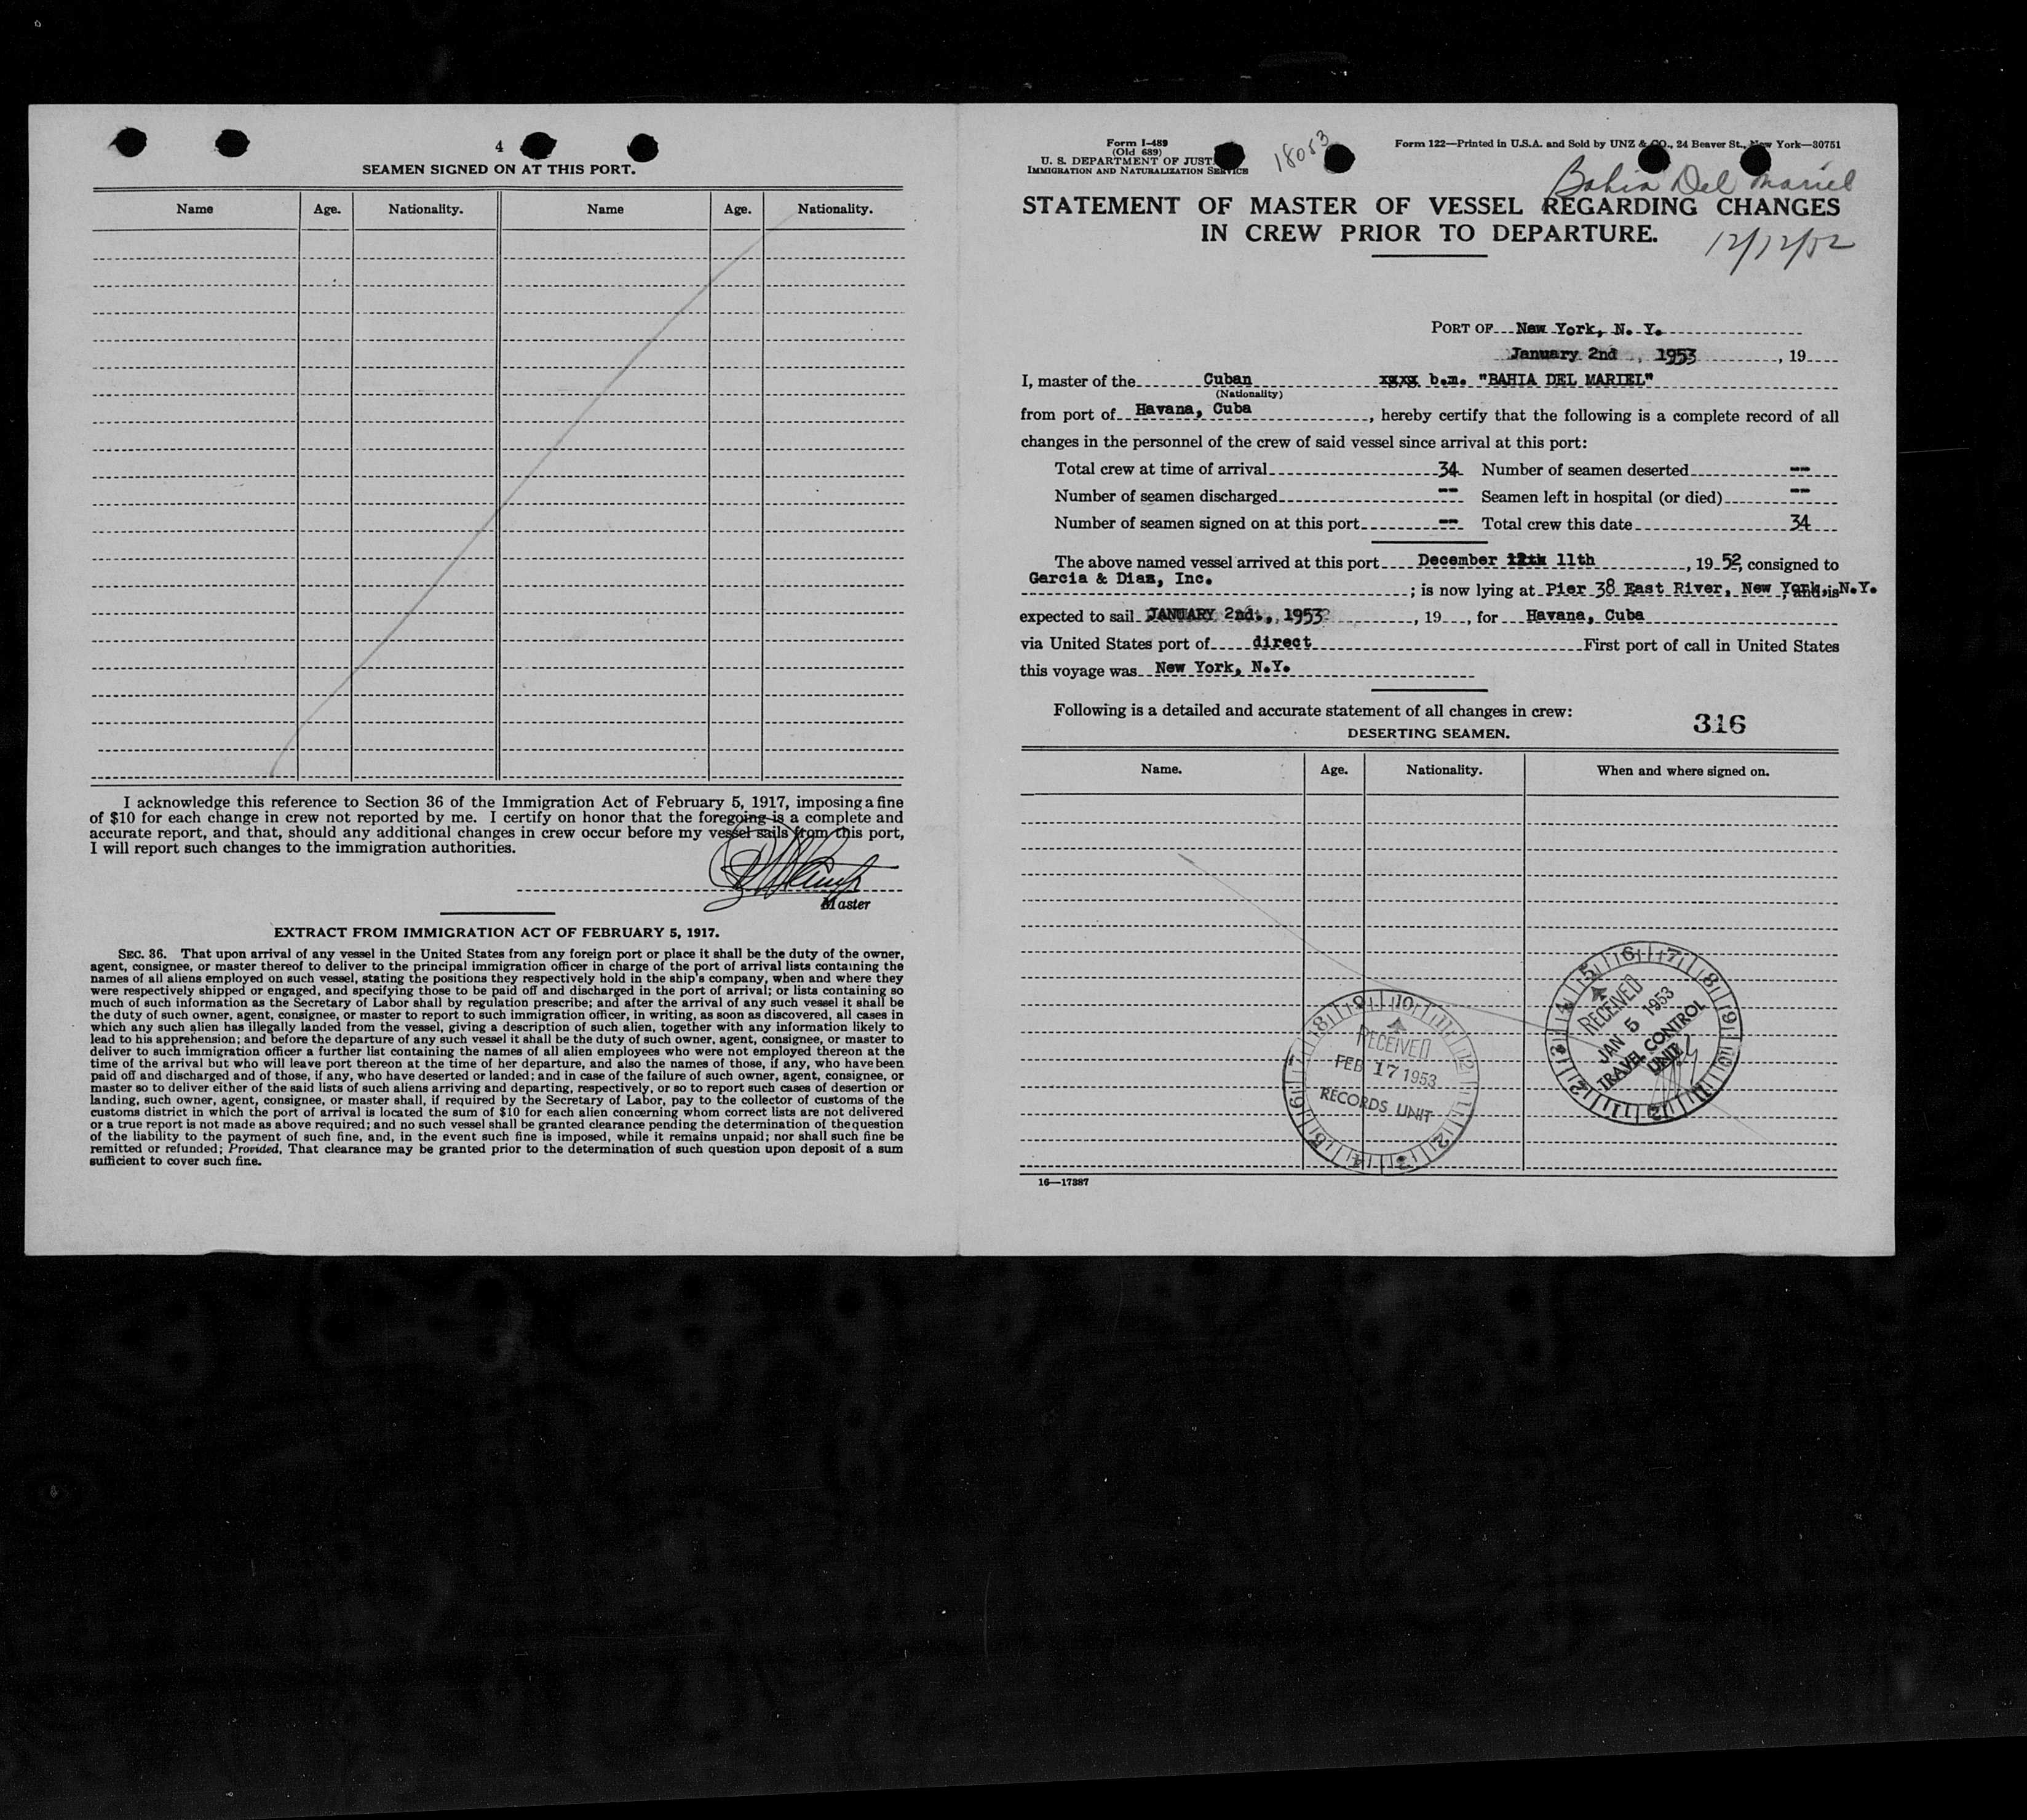 4
SEAMEN SIGNED ON AT THIS PORT.
Name Age. Nationality. Name Age. Nationality.
I acknowledge this reference to Section 36 of the Immigration Act of February 5, 1917, imposing a fine
of $10 for each change in crew not reported by me. I certify on honor that the foregoing is a complete and
accurate report, and that, should any additional changes in crew occur before my vessel sails from this port,
I will report such changes to the immigration authorities.
Master
EXTRACT FROM IMMIGRATION ACT OF FEBRUARY 5, 1917.
SEC. 36. That upon arrival of any vessel in the United States from any foreign port or place it shall be the duty of the owner,
agent, consignee, or master thereof to deliver to the principal immigration officer in charge of the port of arrival lists containing the
names of all aliens employed on such vessel, stating the positions they respectively hold in the ship's company, when and where they
were respectively shipped or engaged, and specifying those to be paid off and discharged in the port of arrival; or lists containing so
much of such information as the Secretary of Labor shall by regulation prescribe; and after the arrival of any such vessel it shall be
the duty of such owner, agent, consignee, or master to report to such immigration officer, in writing, as soon as discovered, all cases in
which any such alien has illegally landed from the vessel, giving a description of such alien, together with any information likely to
lead to his apprehension; and before the departure of any such vessel it shall be the duty of such owner, agent, consignee, or master to
deliver to such immigration officer a further list containing the names of all alien employees who were not employed thereon at the
time of the arrival but who will leave port thereon at the time of her departure, and also the names of those, if any, who have been
paid off and discharged and of those, if any, who have deserted or landed; and in case of the failure of such owner, agent, consignee, or
master so to deliver either of the said lists of such aliens arriving and departing, respectively, or so to report such cases of desertion or
landing, such owner, agent, consignee, or master shall, if required by the Secretary of Labor, pay to the collector of customs of the
customs district in which the port of arrival is located the sum of $10 for each alien concerning whom correct lists are not delivered
or a true report is not made as above required; and no such vessel shall be granted clearance pending the determination of the question
of the liability to the payment of such fine, and, in the event such fine is imposed, while it remains unpaid; nor shall such fine be
remitted or refunded; Provided, That clearance may be granted prior to the determination of such question upon deposit of a sum
sufficient to cover such fine.
Form I-489
(Old 689)
U. S. DEPARTMENT OF JUST
IMMIGRATION AND NATURALIZATION SERVICE
18053
Form 122—Printed in U.S.A. and Sold by UNZ & CO., 24 Beaver St., New York—30751
Bahia Del Mariel
STATEMENT OF MASTER OF VESSEL REGARDING CHANGES
IN CREW PRIOR TO DEPARTURE.
12/12/52
PORT OF New York, N. Y.
January 2nd , 1953 , 19
I, master of the Cuban xxxx b.m. "BAHIA DEL MARIEL"
(Nationality)
from port of Havana, Cuba , hereby certify that the following is a complete record of all
changes in the personnel of the crew of said vessel since arrival at this port:
Total crew at time of arrival 34 Number of seamen deserted --
Number of seamen discharged -- Seamen left in hospital (or died) --
Number of seamen signed on at this port -- Total crew this date 34
The above named vessel arrived at this port December 12th 11th , 19 52, consigned to
Garcia & Diaz, Inc. ; is now lying at Pier 38 East River, New York, N.Y. ; and is
expected to sail JANUARY 2nd., 1953 , 19 , for Havana, Cuba
via United States port of direct First port of call in United States
this voyage was New York, N.Y.
Following is a detailed and accurate statement of all changes in crew:
316
DESERTING SEAMEN.
Name. Age. Nationality. When and where signed on.
RECEIVED
JAN 5 1953
TRAVEL CONTROL
UNIT
RECEIVED
FEB 17 1953
RECORDS UNIT
16—17387